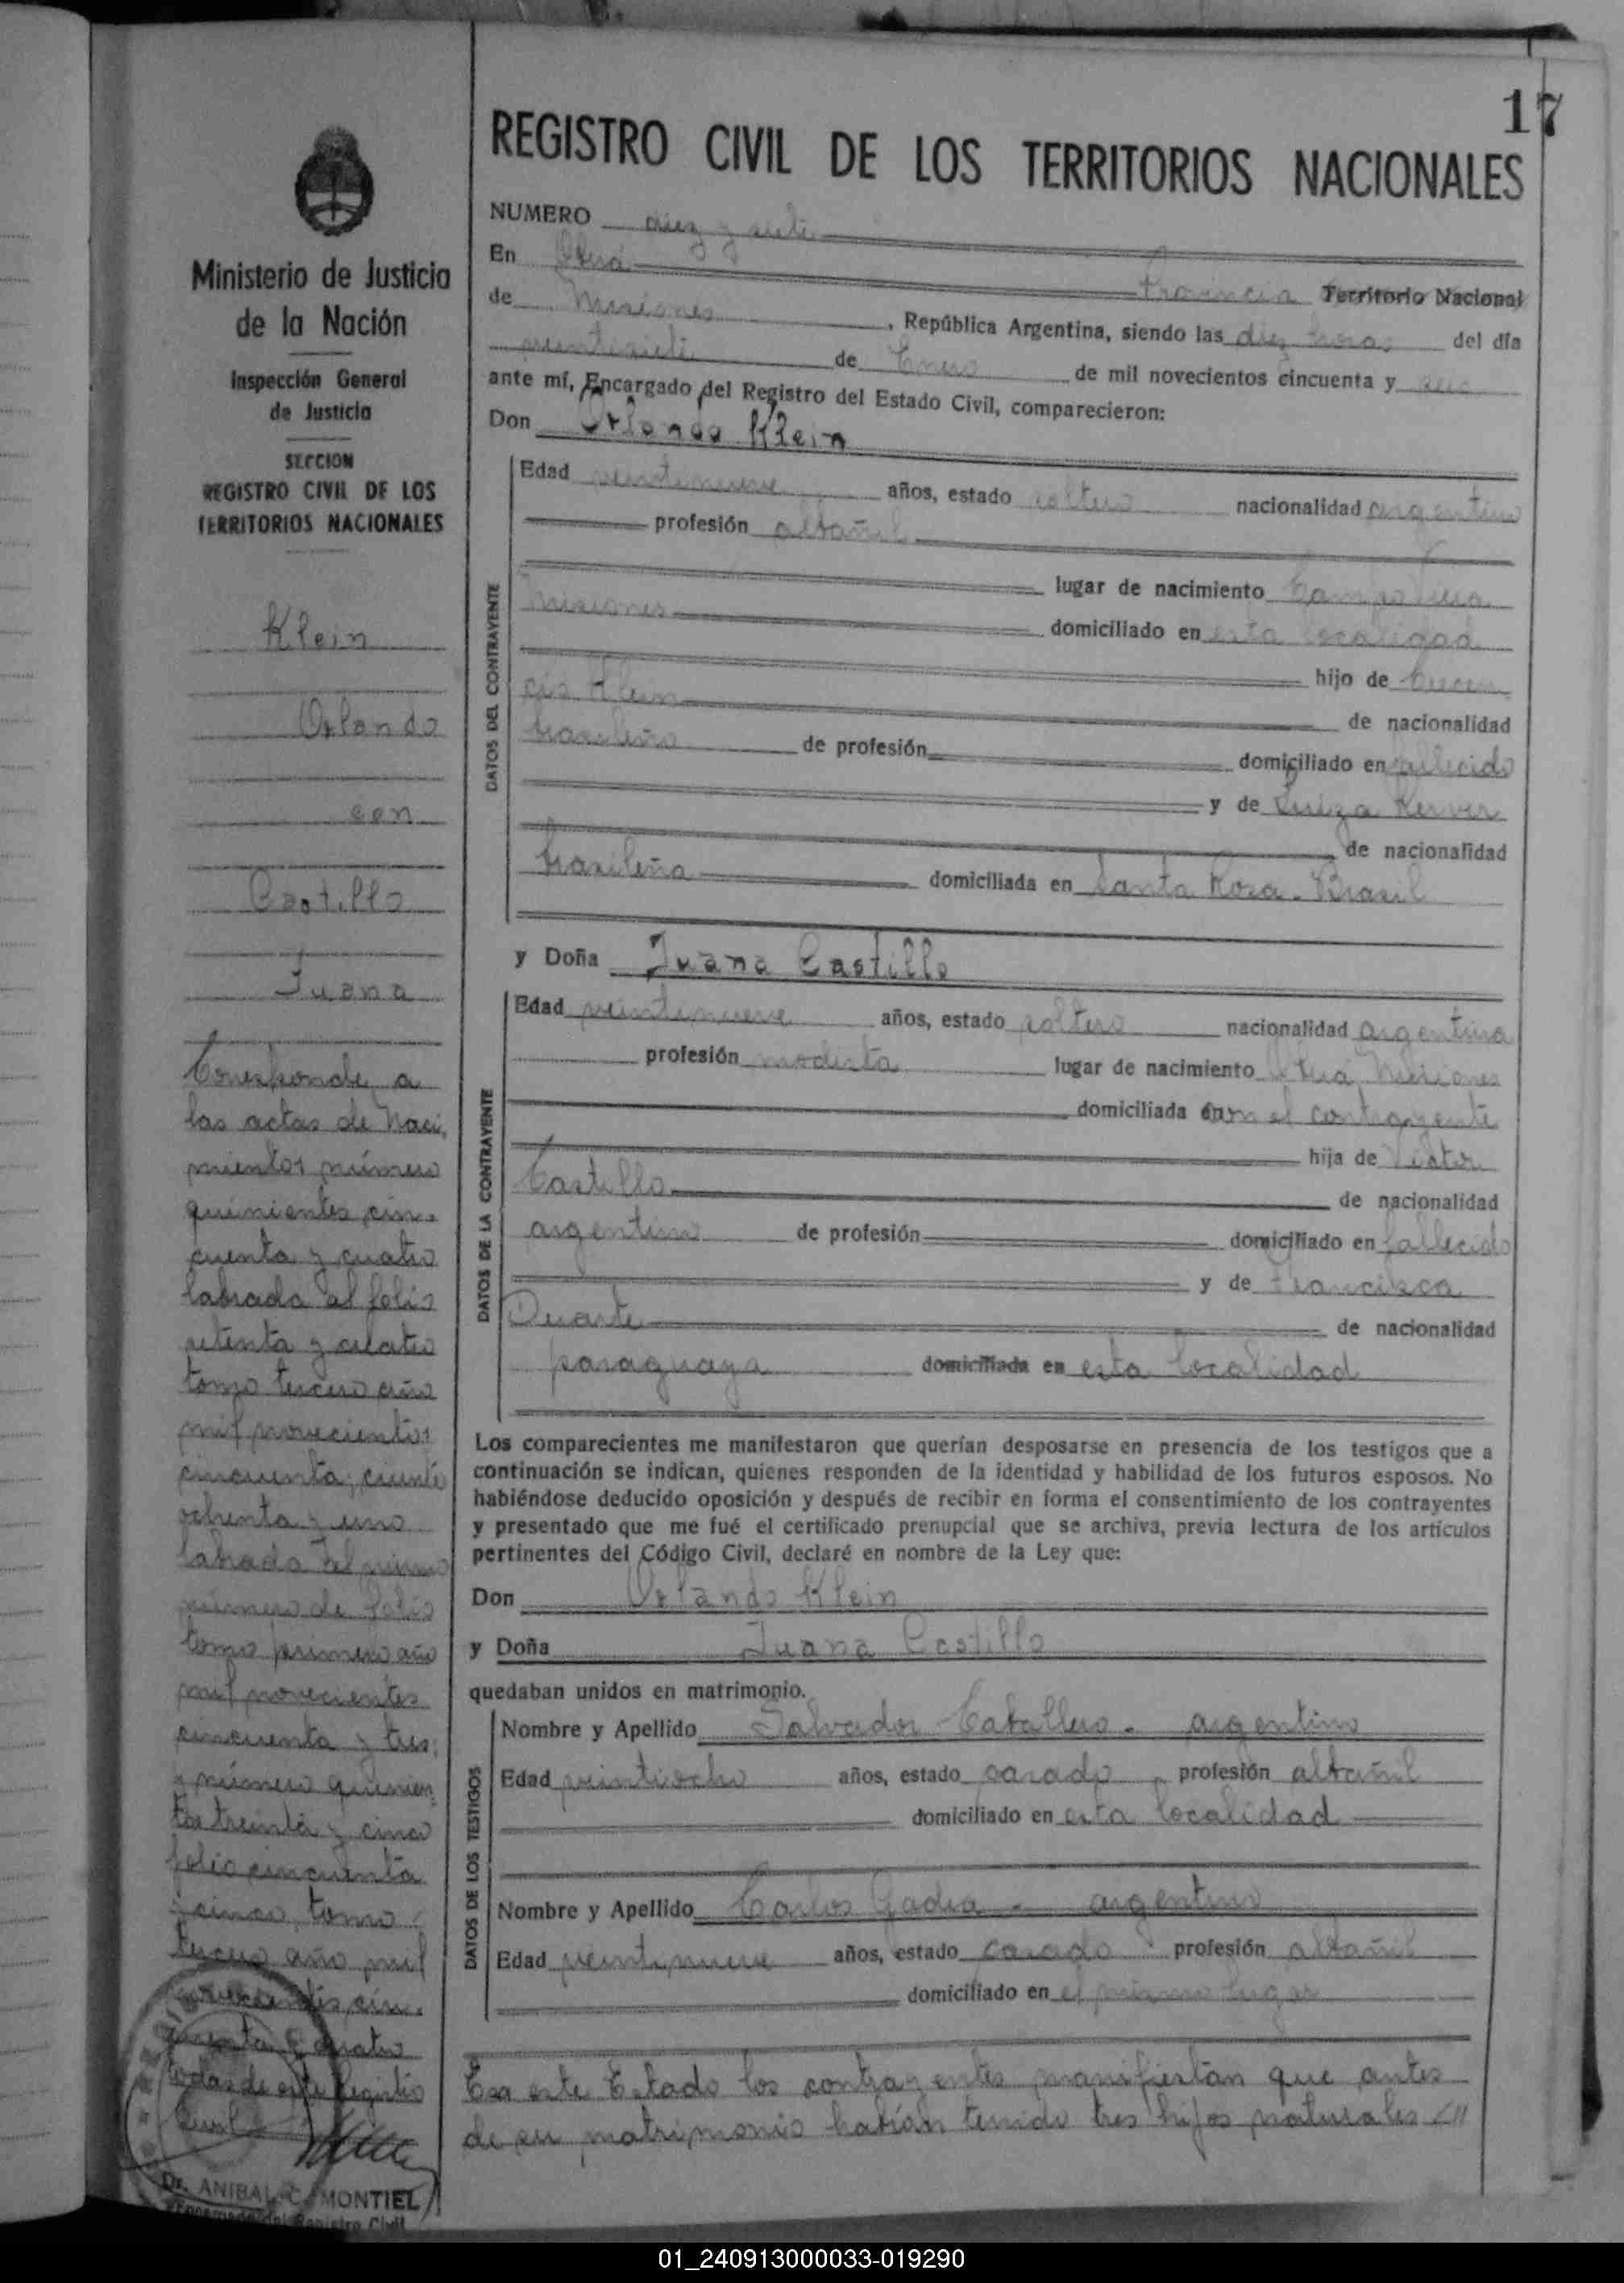 17
REGISTRO CIVIL DE LOS TERRITORIOS NACIONALES
NUMERO diez y siete
En Oberá Provincia Territorio Nacional
de Misiones, República Argentina, siendo las diez horas del día
veintisiete de Enero de mil novecientos cincuenta y seis
ante mí, Encargado del Registro del Estado Civil, comparecieron:
Don Orlando Klein
DATOS DEL CONTRAYENTE
Edad veintinueve años, estado soltero nacionalidad argentino
profesión albañil
lugar de nacimiento Campo Viera
Misiones domiciliado en esta localidad
hijo de
Klein de nacionalidad
brasileño de profesión domiciliado en fallecido
y de Luiza Kerver
de nacionalidad
brasileña domiciliada en Santa Rosa - Brasil
y Doña Juana Castillo
DATOS DE LA CONTRAYENTE
Edad veintinueve años, estado soltera nacionalidad argentina
profesión modista lugar de nacimiento Oberá Misiones
domiciliada con el contrayente
hija de Victor
Castillo de nacionalidad
argentino de profesión domiciliado en fallecido
y de Francisca
Duarte de nacionalidad
paraguaya domiciliada en esta localidad
Los comparecientes me manifestaron que querían desposarse en presencia de los testigos que a
continuación se indican, quienes responden de la identidad y habilidad de los futuros esposos. No
habiéndose deducido oposición y después de recibir en forma el consentimiento de los contrayentes
y presentado que me fué el certificado prenupcial que se archiva, previa lectura de los artículos
pertinentes del Código Civil, declaré en nombre de la Ley que:
Don Orlando Klein
y Doña Juana Castillo
quedaban unidos en matrimonio.
DATOS DE LOS TESTIGOS
Nombre y Apellido Salvador Caballero - argentino
Edad veintiocho años, estado casado profesión albañil
domiciliado en esta localidad
Nombre y Apellido Carlos Gadea - argentino
Edad veintinueve años, estado casado profesión albañil
domiciliado en el mismo lugar
En este Estado los contrayentes manifiestan que antes
de su matrimonio habían tenido tres hijos naturales ///
Ministerio de Justicia
de la Nación
Inspección General
de Justicia
SECCION
REGISTRO CIVIL DE LOS
TERRITORIOS NACIONALES
Klein
Orlando
con
Castillo
Juana
Corresponde a
las actas de Naci-
mientos número
quinientos cin-
cuenta y cuatro
labrada al folio
setenta y cuatro
tomo tercero año
mil novecientos
cincuenta, ciento
ochenta y uno
labrada al mismo
número de folio
tomo primero año
mil novecientos
cincuenta y tres;
y número quinien-
tos treinta y cinco
folio cincuenta
y cinco, tomo
tercero año mil
novecientos cin-
cuenta y cuatro
todas de este Registro
Civil
Dr. ANIBAL C. MONTIEL
Encargado del Registro Civil
01_240913000033-019290